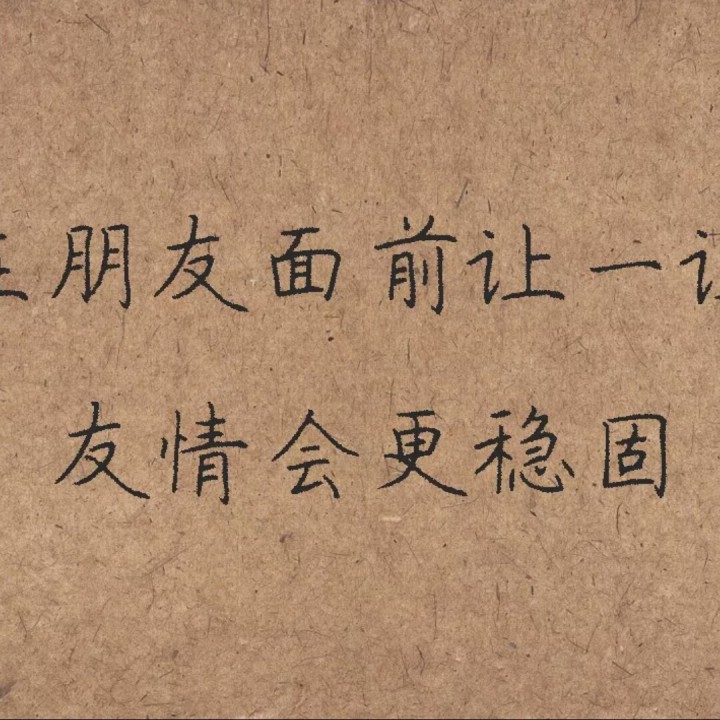 朋友面前让一
友情会更稳固